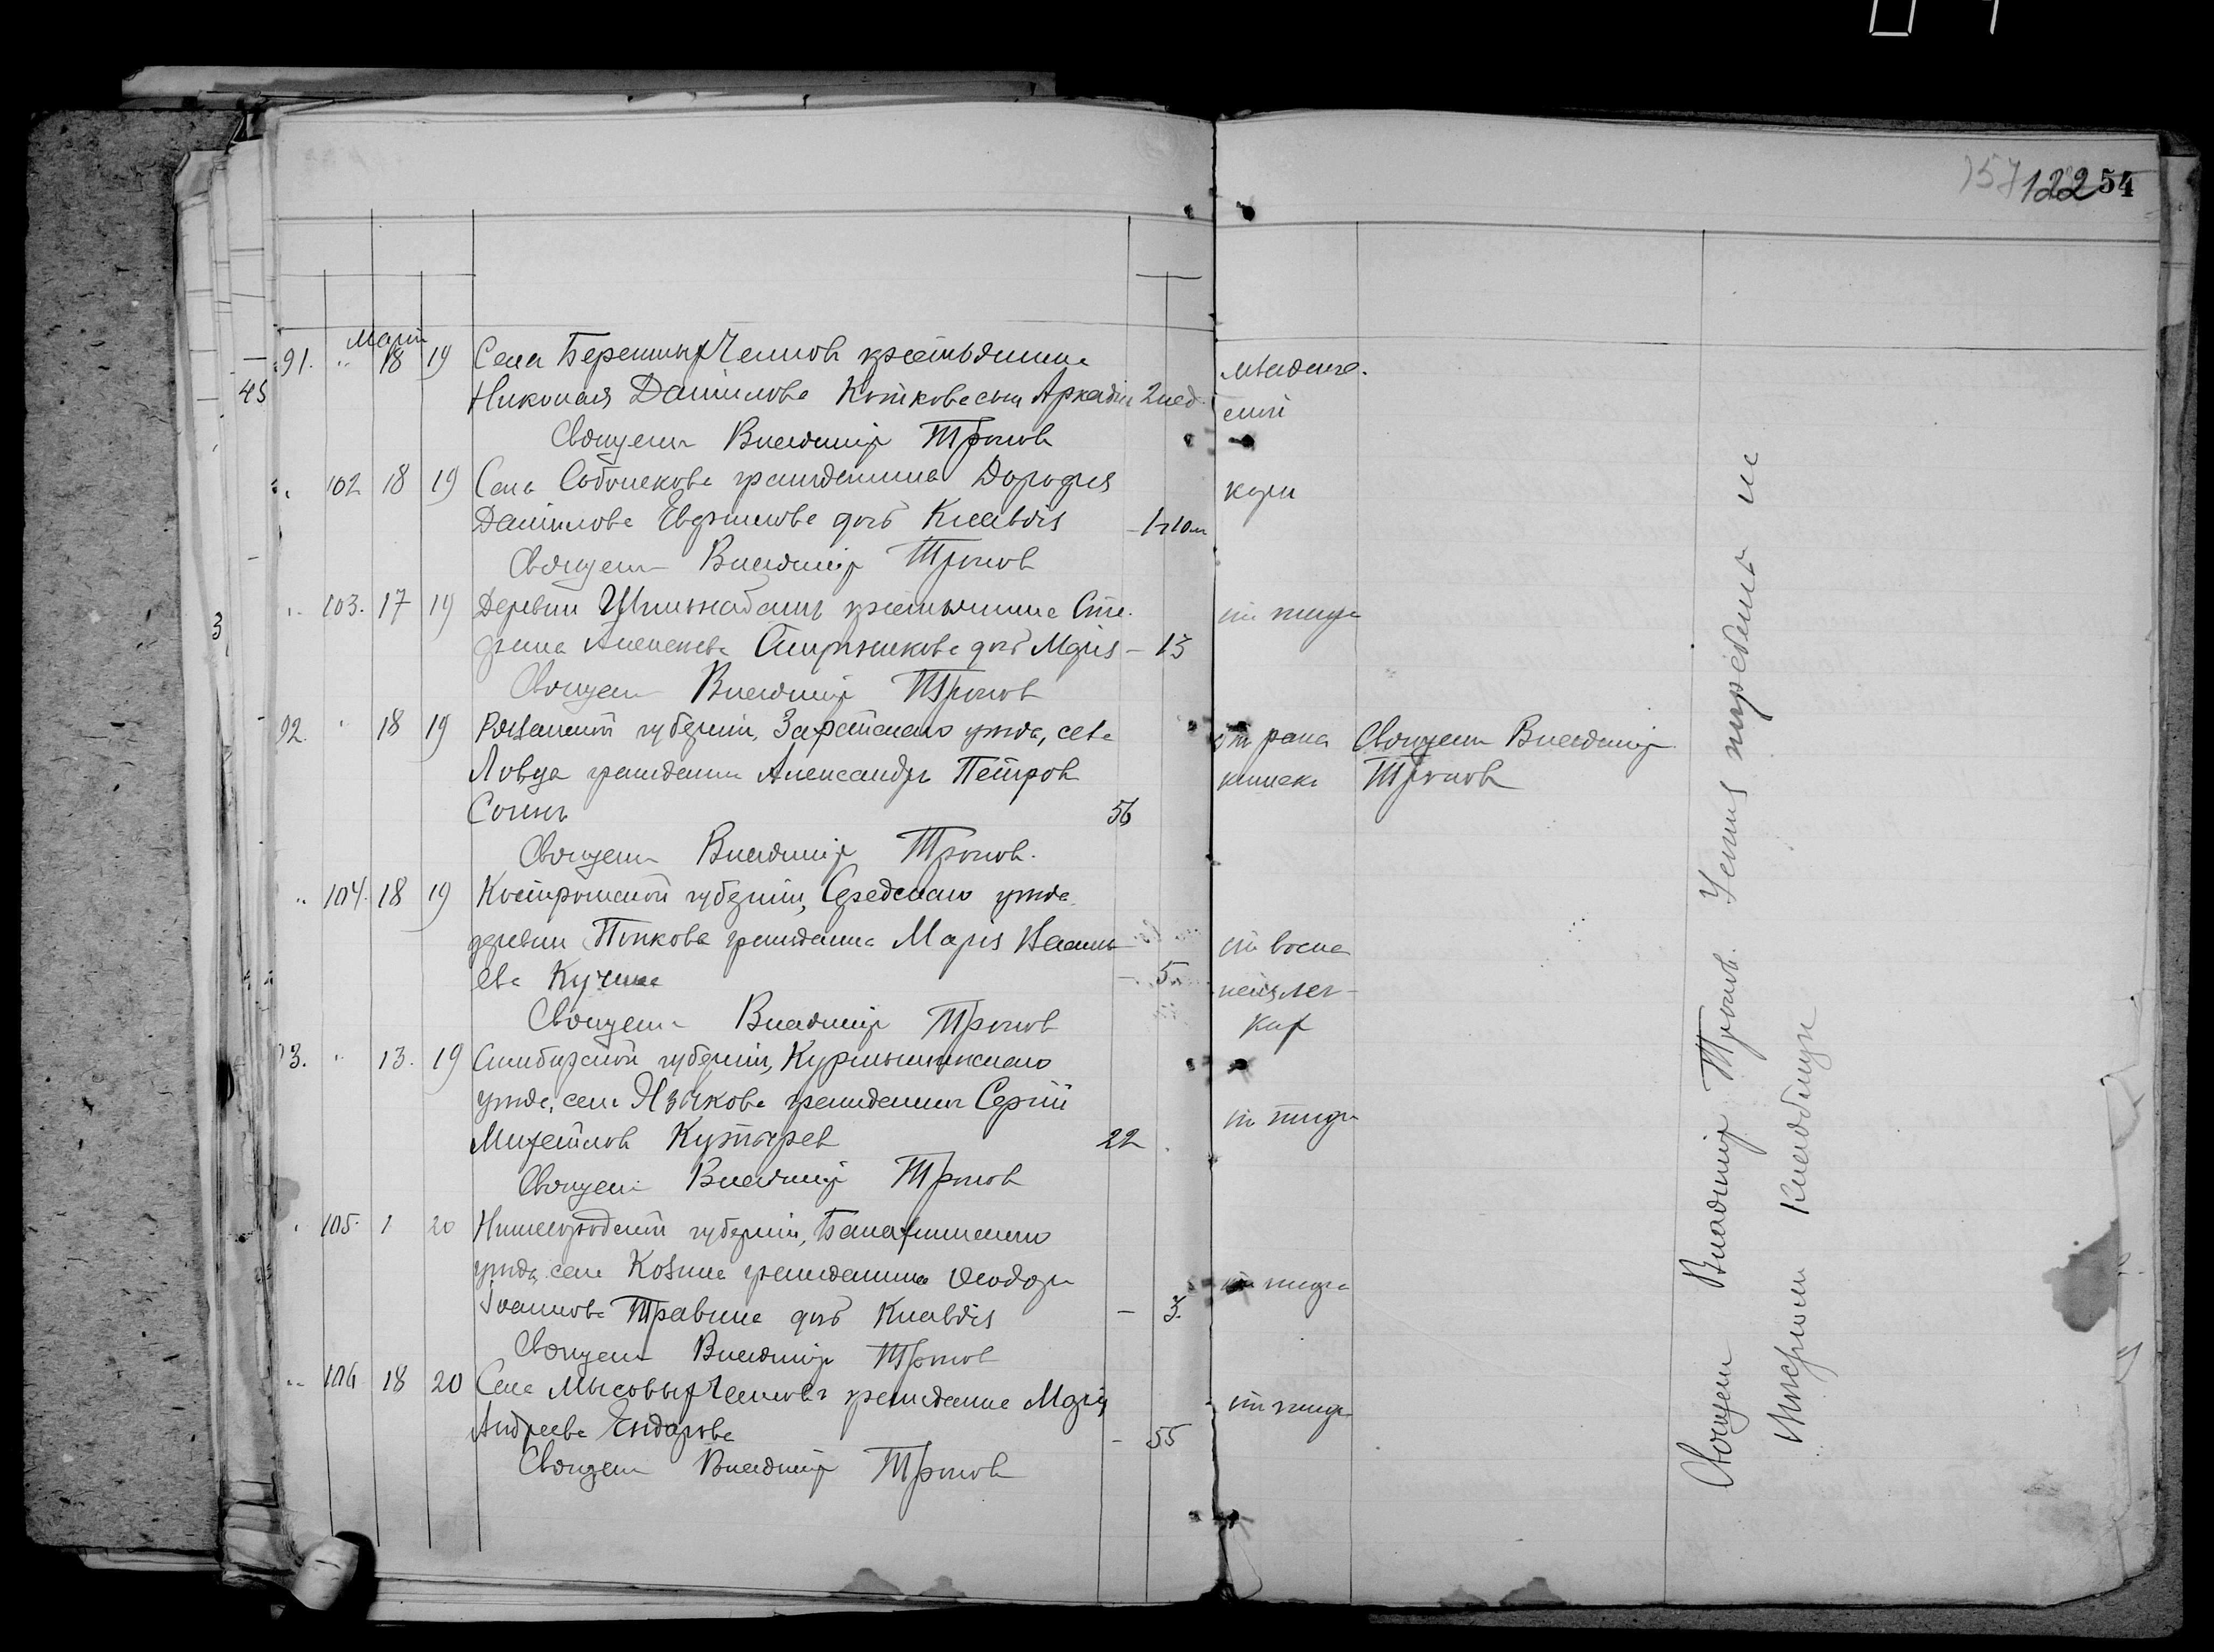 157 122 54
Март
91. " 18 19 Села Берешных Челнов крестьянина
Николая Данилова Коткова сын Аркадий 2 нед.
младенч.
Священ Владимир Тронов
" 102 18 19 Села гражданина Дорофея
Данилова дочь Клавдия - 1 г 10 м
кори
Священ Владимир Тронов
" 103. 17 19 Деревни крестьянина Сте-
фана Алексеева дочь Мария - 13
от тифа
Священ Владимир Тронов
92. " 18 19 Рязанской губернии, Зарайского уезда, села
Ловца гражданин Александр Петров
Сонин 56
от рака
кишек
Священ Владимир
Тронов
Священ Владимир Тронов.
" 104. 18 19 Костромской губернии, Середского уезда
деревни Попкова гражданка Мария Василь
ева Кучина - 5
от воспа
легк
Священ Владимир Тронов
93. " 13. 19 Симбирской губернии, Курмышского
уезда, села Языкова гражданин Сергий
Михайлов Кутырев 22
от тифа
Священ Владимир Тронов
" 105. 1 20 Нижегородской губернии, Балахнинского
уезда, села Козина гражданина Феодора
Иоаннова Травина дочь Клавдия - 3.
от тифа
Священ Владимир Тронов
" 106 18 20 Села Мысовых Челнов гражданка Мария
Андреева Ендарова - 55
от тифа
Священ Владимир Тронов
Священ Владимир Тронов. на
кладбище
3
45